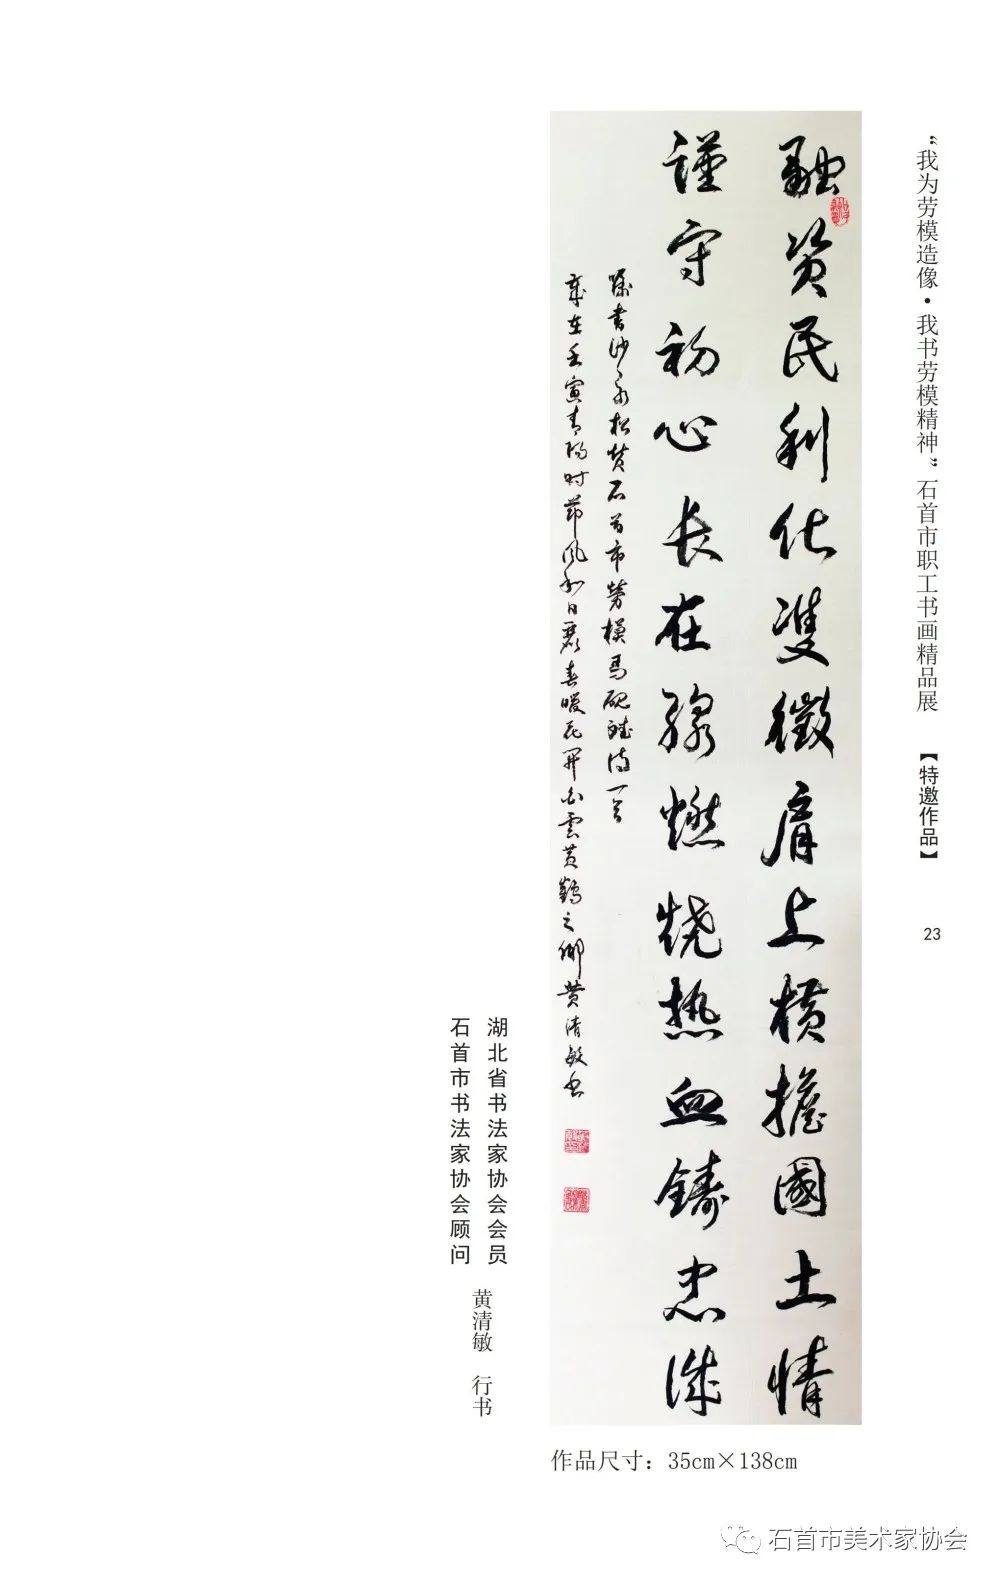 “我为劳模造像·我书劳模精神”石首市职工书画精品展
【特邀作品】
23
融资民利化双徵肩上横擔國土情
謹守初心长在線燃烧热血鑄忠诚
書沙永松赞石首市劳模馬砚诗一首
歲在壬寅青阳时節風和日麗春暖花開白雲黄鶴之鄉黄清敏书
湖北省书法家协会会员
石首市书法家协会顾问
黄清敏 行书
作品尺寸：35cm×138cm
石首市美术家协会